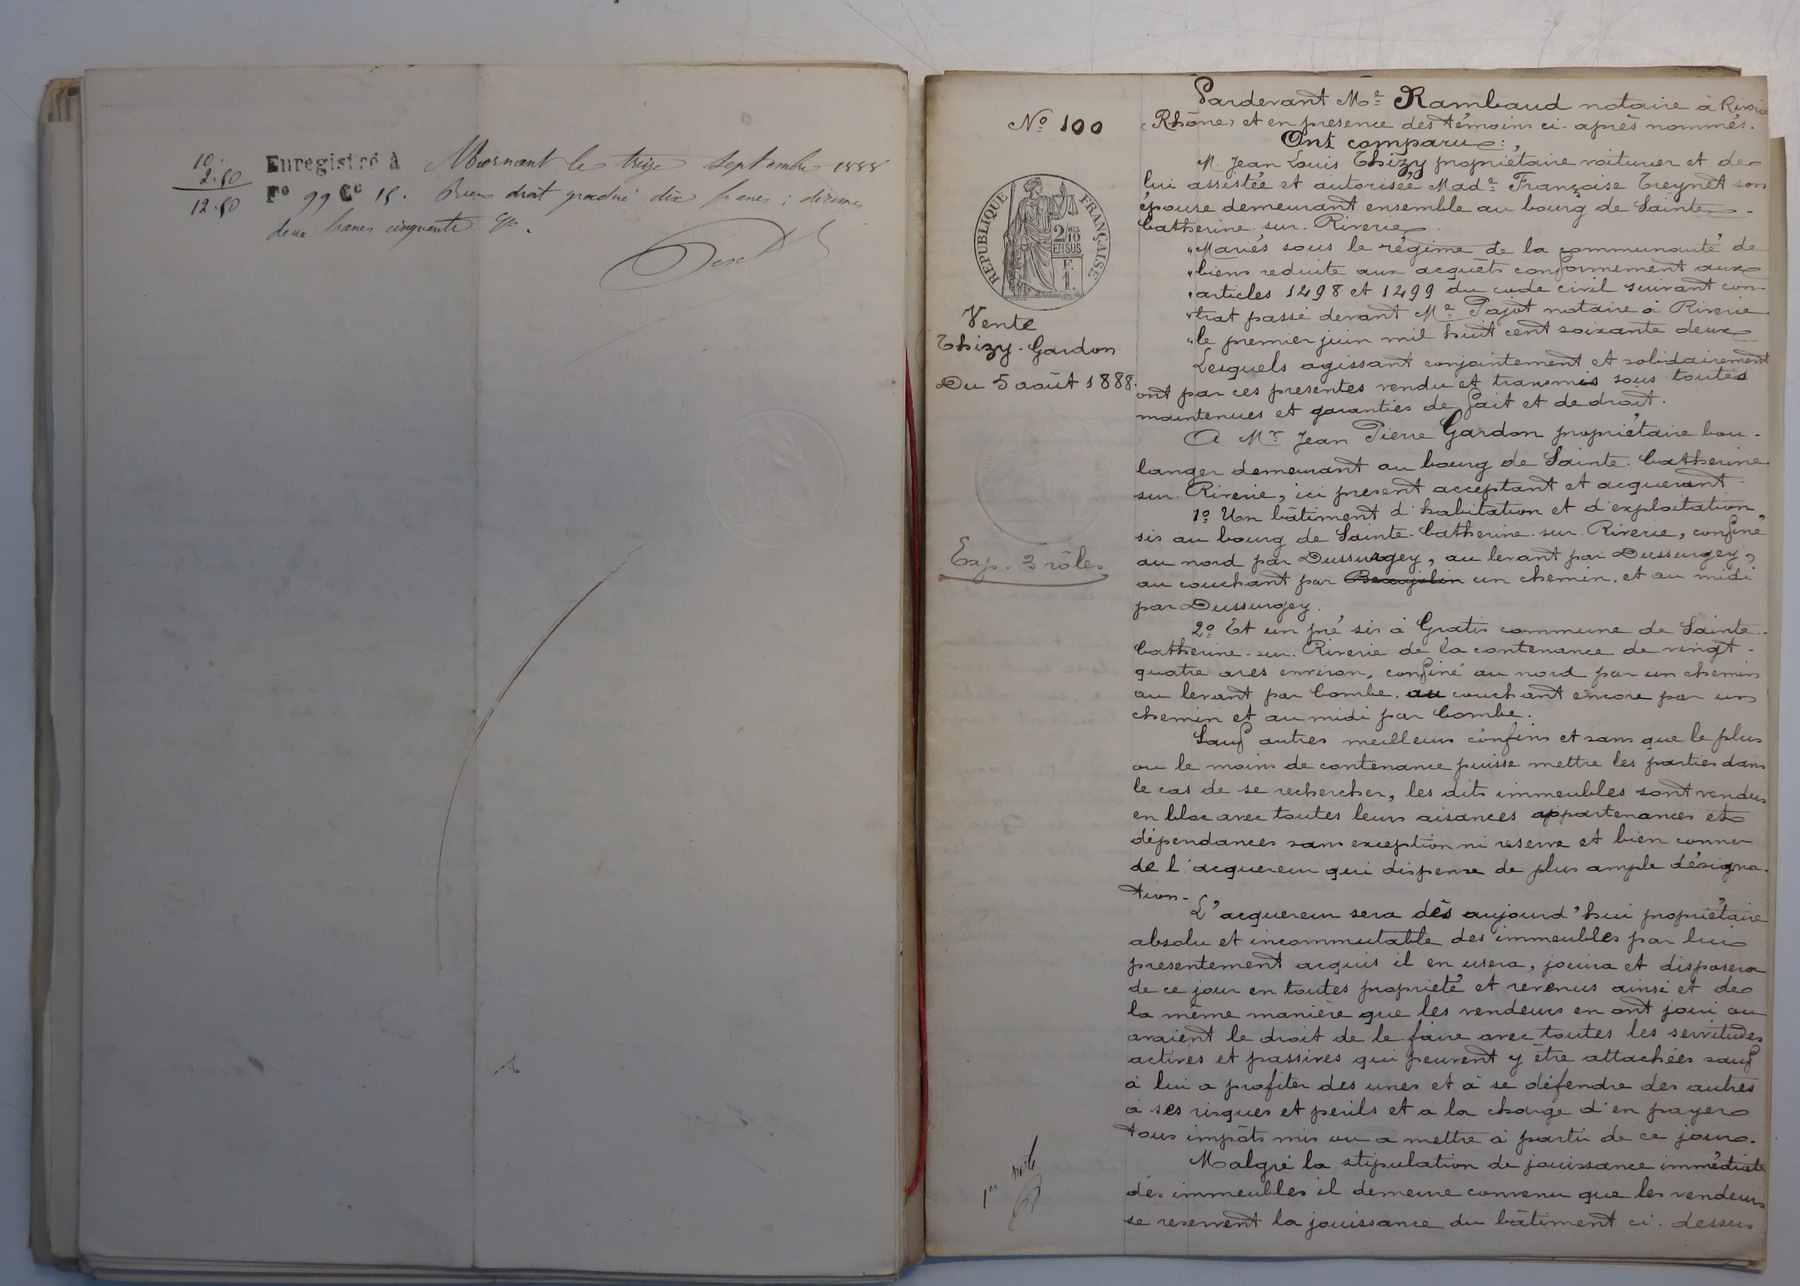 10
2.50
12.50
Enregistré à Mornant le treize septembre 1888
Fo 99 Ce 15. Reçu droit gradué dix francs ; décimes
deux francs cinquante ces.
No 100
RÉPUBLIQUE FRANÇAISE
2 MES 10 EN SUS
F. 1.
Vente
Thizy-Gardon
Du 5 août 1888.
Exp. 3 rôles
1er rôle
Pardevant Me Rambaud notaire à Riverie
(Rhône) et en presence des témoins ci-après nommés.
Ont comparu :
M. Jean Louis Thizy propriétaire voiturier et de
lui assistée et autorisée Made Françoise Creynet son
épouse demeurant ensemble au bourg de Sainte-
Catherine-sur-Riverie
"Mariés sous le régime de la communauté de
"biens reduite aux acquêts conformement aux
"articles 1498 et 1499 du code civil suivant con-
"trat passé devant Me Pajot notaire à Riverie
"le premier juin mil huit cent soixante deux
Lesquels agissant conjointement et solidairement
ont par ces presentes vendu et transmis sous toutes
maintenues et garanties de fait et de droit.
A Mr Jean Pierre Gardon propriétaire bou-
langer demeurant au bourg de Sainte-Catherine
sur-Riverie, ici present acceptant et acquerant
1o Un bâtiment d'habitation et d'exploitation,
sis au bourg de Sainte-Catherine-sur-Riverie, confiné
au nord par Dussurgey, au levant par Dussurgey,
au couchant par un chemin, et au midi
par Dussurgey.
2o Et un pré sis à Gratis commune de Sainte-
Catherine-sur-Riverie de la contenance de vingt-
quatre ares environ, confiné au nord par un chemin
au levant par Combe, au couchant encore par un
chemin et au midi par Combe.
Sauf autres meilleurs confins et sans que le plus
ou le moins de contenance puisse mettre les parties dans
le cas de se rechercher, les dits immeubles sont vendus
en bloc avec toutes leurs aisances appartenances et
dépendances sans exception ni reserve et bien connu
de l'acquereur qui dispense de plus ample désigna-
tion-
L'acquereur sera dès aujourd'hui propriétaire
absolu et incommutable des immeubles par lui
presentement acquis il en usera, jouira et disposera
de ce jour en toutes propriété et revenus ainsi et de
la même manière que les vendeurs en ont joui ou
avaient le droit de le faire avec toutes les servitudes
actives et passives qui peuvent y être attachées sauf
à lui a profiter des unes et à se défendre des autres
à ses risques et perils et a la charge d'en payer
tous impôts mis ou a mettre à partir de ce jour.
Malgré la stipulation de jouissance immédiate
des immeubles il demeure convenu que les vendeurs
se reservent la jouissance du bâtiment ci-dessus